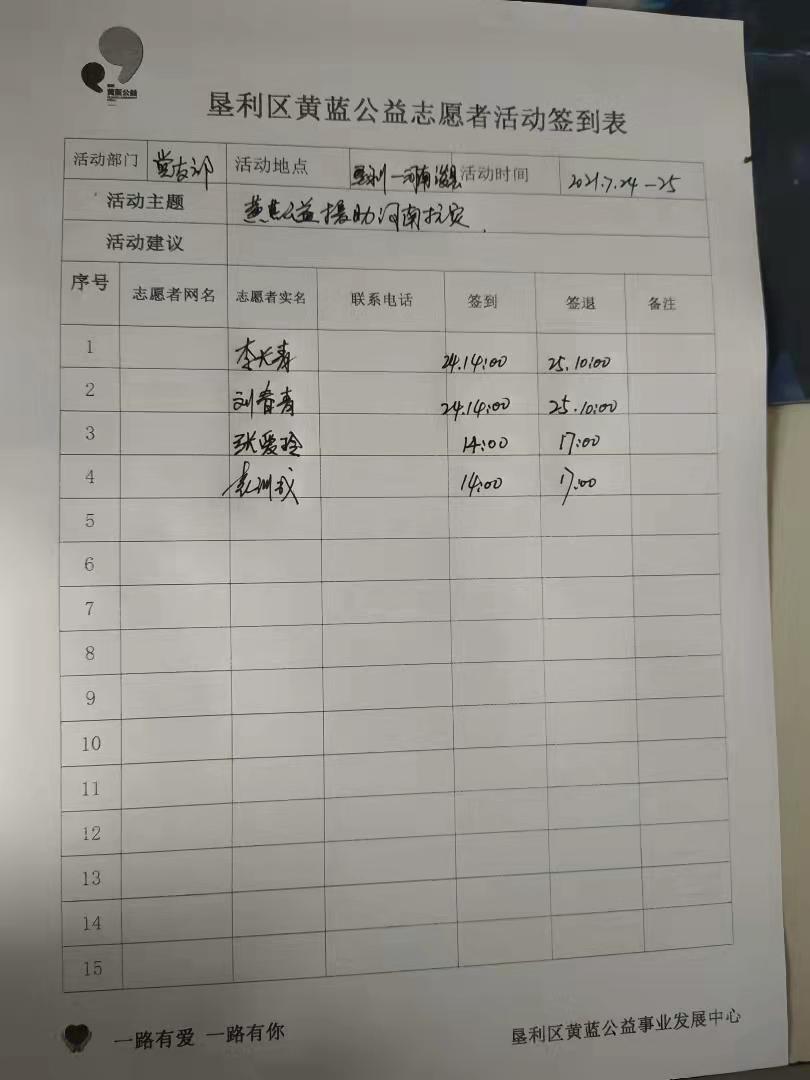 黄蓝公益
垦利区黄蓝公益志愿者活动签到表
活动部门 活动地点 垦利—河南浚县 活动时间 2021.7.24-25
活动主题 黄蓝公益援助河南抗灾
活动建议
序号 志愿者网名 志愿者实名 联系电话 签到 签退 备注
1 李长青 24.14:00 25.10:00
2 刘春青 24.14:00 25.10:00
3 张爱玲 14:00 17:00
4 14:00 17:00
5
6
7
8
9
10
11
12
13
14
15
一路有爱 一路有你 垦利区黄蓝公益事业发展中心